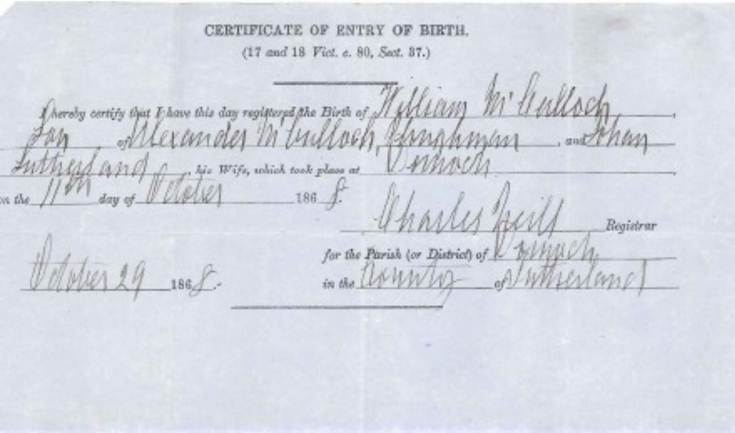 CERTIFICATE OF ENTRY OF BIRTH.
(17 and 18 Vict. c. 80, Sect. 37.)
I hereby certify that I have this day registered the Birth of William McCulloch,
Son of Alexander McCulloch, Ploughman, and Johan
Sutherland, his Wife, which took place at Dornoch
on the 11th day of October 1868.
Charles Neill Registrar
for the Parish (or District) of Dornoch
October 29 1868.
in the County of Sutherland